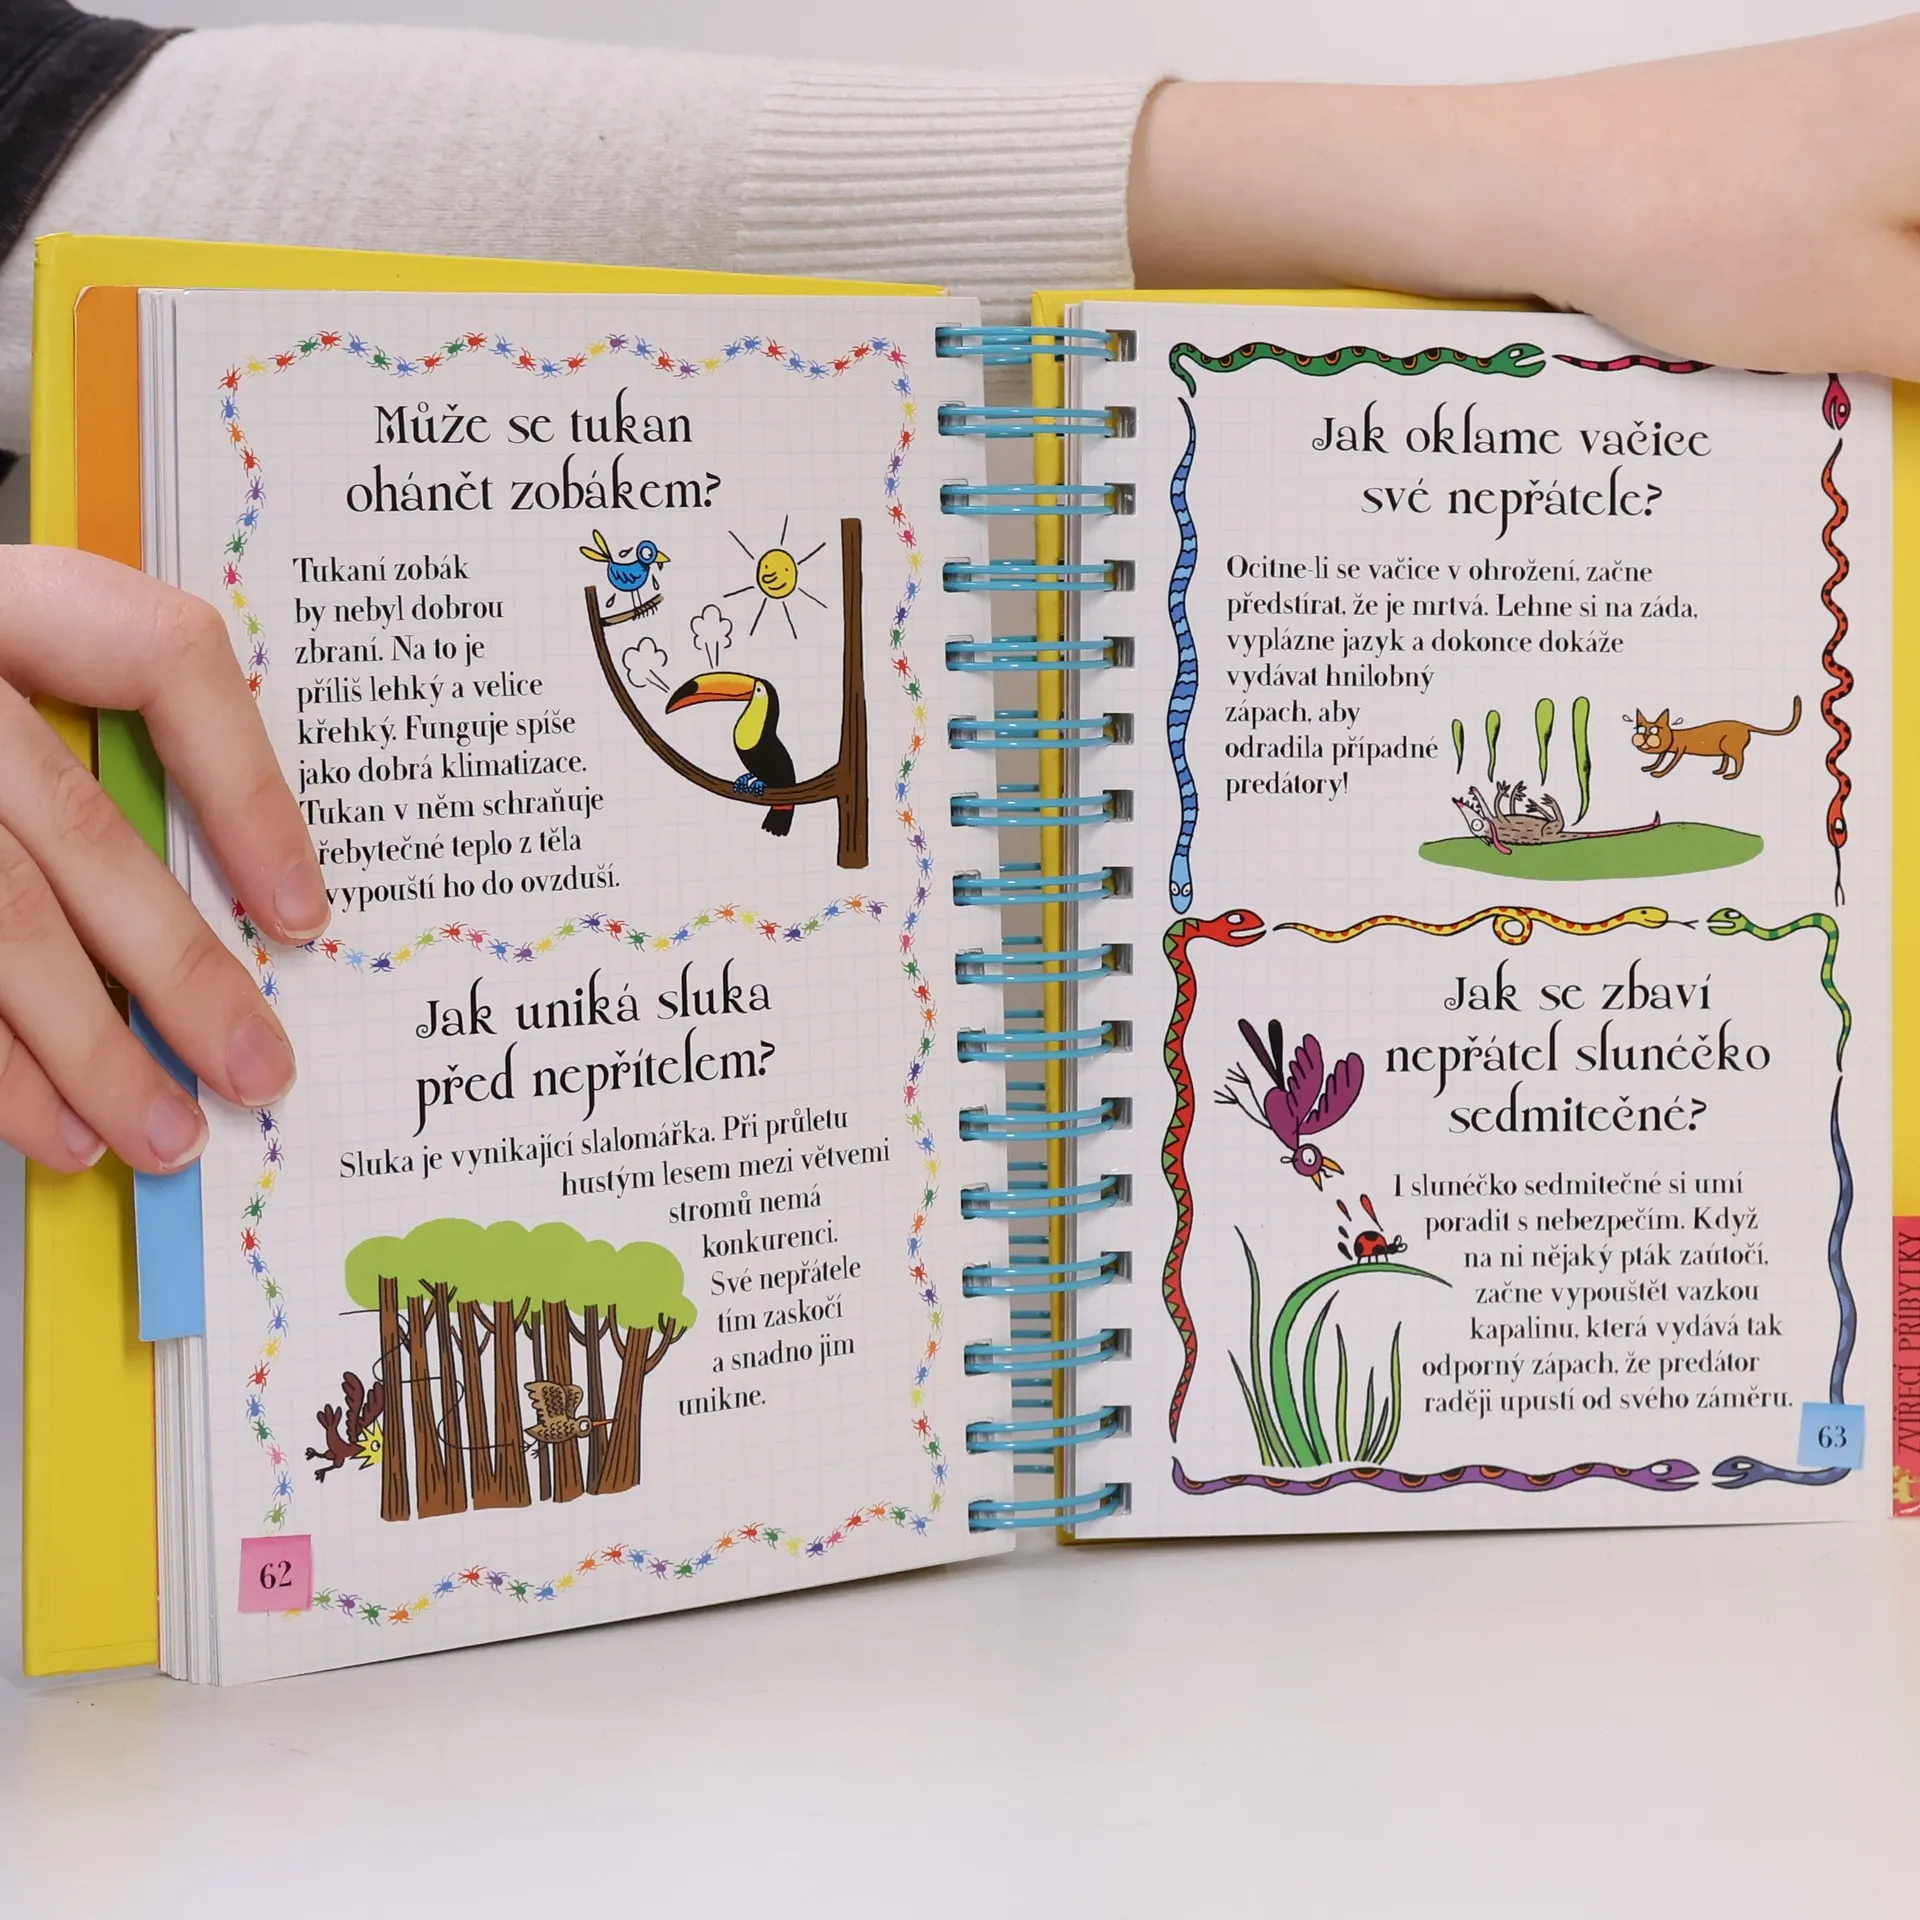 Může se tukan
ohánět zobákem?
Tukaní zobák
by nebyl dobrou
zbraní. Na to je
příliš lehký a velice
křehký. Funguje spíše
jako dobrá klimatizace.
Tukan v něm schraňuje
řebytečné teplo z těla
vypouští ho do ovzduší.
Jak uniká sluka
před nepřítelem?
Sluka je vynikající slalomářka. Při průletu
hustým lesem mezi větvemi
stromů nemá
konkurenci.
Své nepřátele
tím zaskočí
a snadno jim
unikne.
62
Jak oklame vačice
své nepřátele?
Ocitne-li se vačice v ohrožení, začne
předstírat, že je mrtvá. Lehne si na záda,
vyplázne jazyk a dokonce dokáže
vydávat hnilobný
zápach, aby
odradila případné
predátory!
Jak se zbaví
nepřátel slunéčko
sedmitečné?
I slunéčko sedmitečné si umí
poradit s nebezpečím. Když
na ni nějaký pták zaútočí,
začne vypouštět vazkou
kapalinu, která vydává tak
odporný zápach, že predátor
raději upustí od svého záměru.
63
ZVÍŘECÍ PŘÍBYTKY